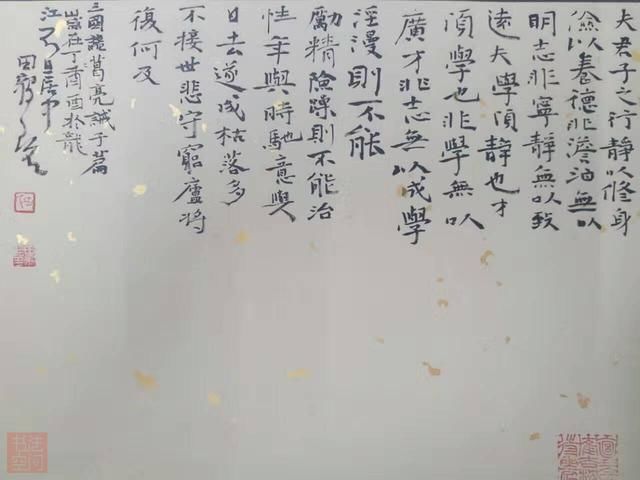 夫君子之行静以修身
儉以養德非澹泊無以
明志非寧静無以致
遠夫學須静也才
須學也非學無以
廣才非志無以成學
淫漫則不能
勵精險躁則不能治
性年與時馳意與
日去遂成枯落多
不接世悲守窮廬將
復何及
三國諸葛亮誡子篇
歲在丁酉酉於龍
江